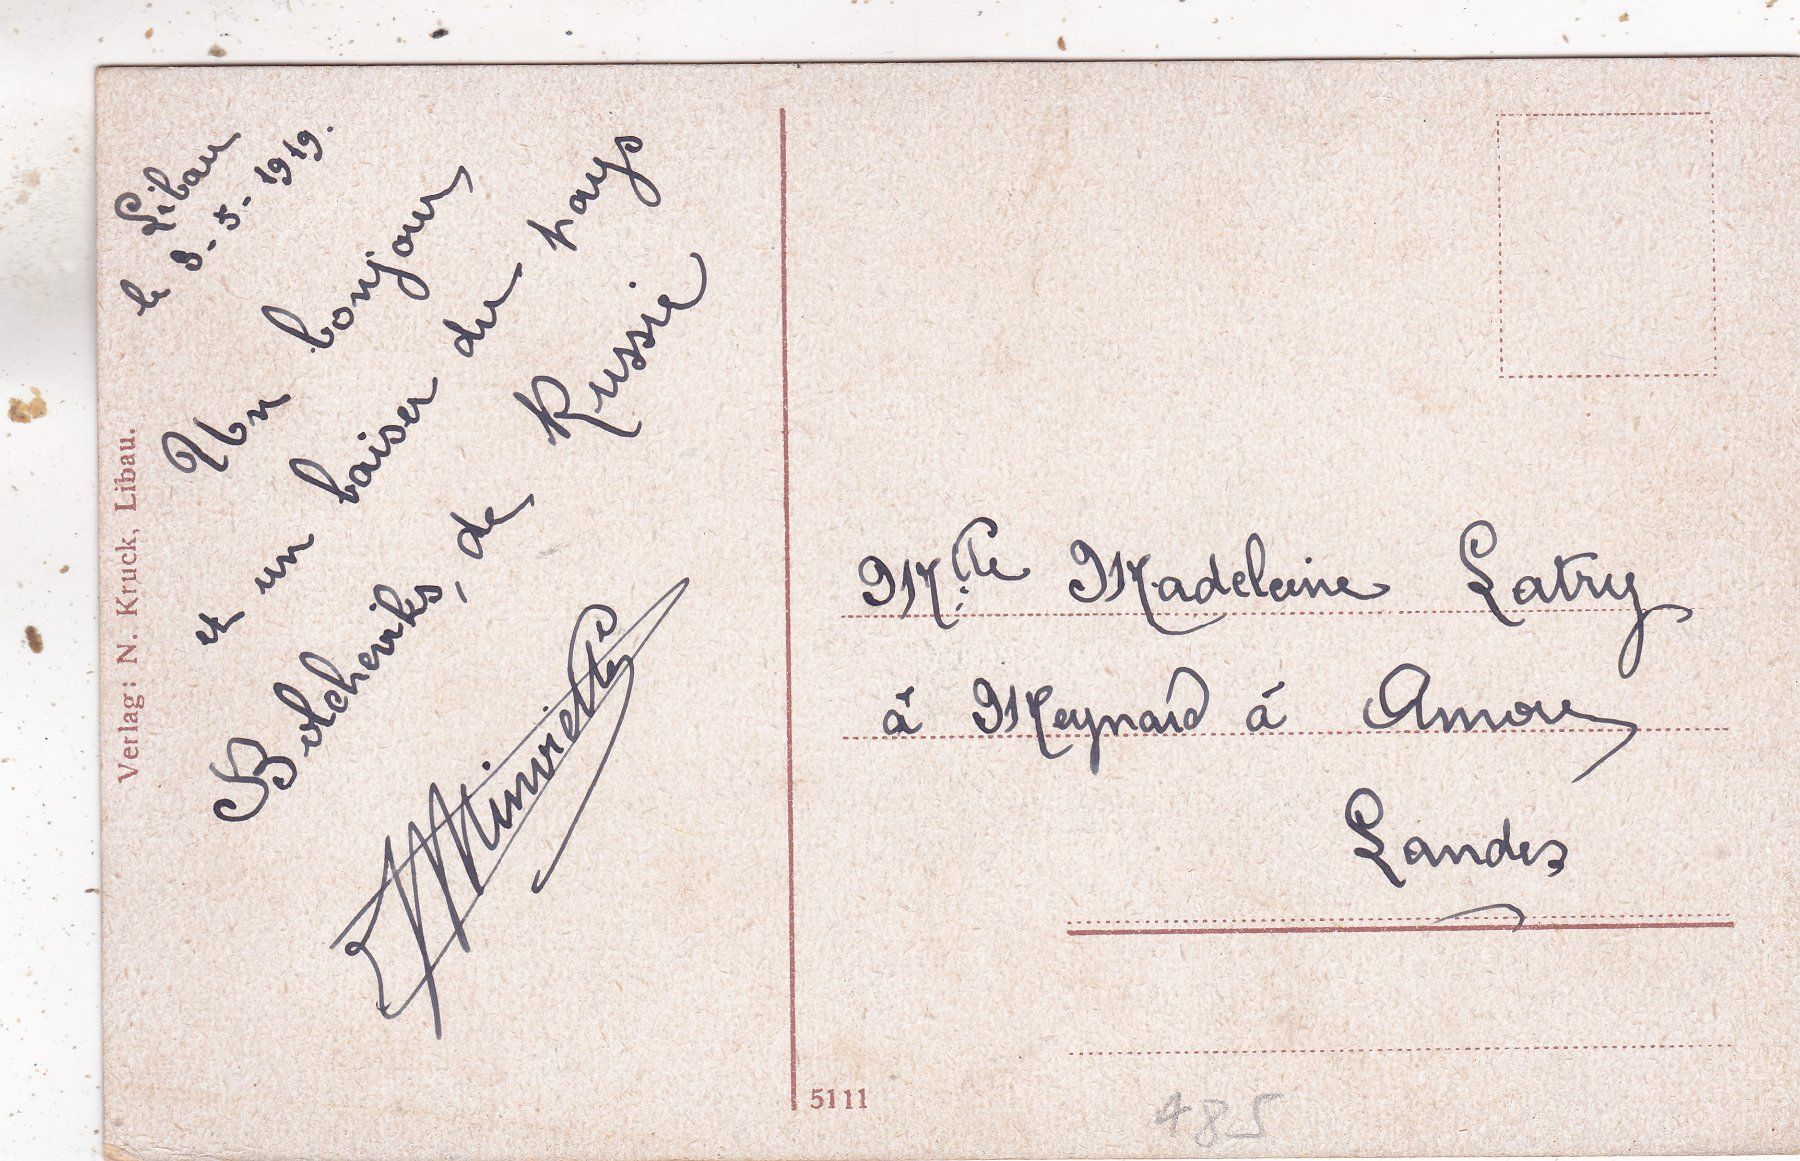 Libau
le 8-5-1919.
Un bonjour
et un baiser du pays
Bolcheviks, de Russie
Minvielle
Verlag: N. Kruck, Libau.
Mlle Madeleine Latry
à Meynard à Amou
Landes
5111
485